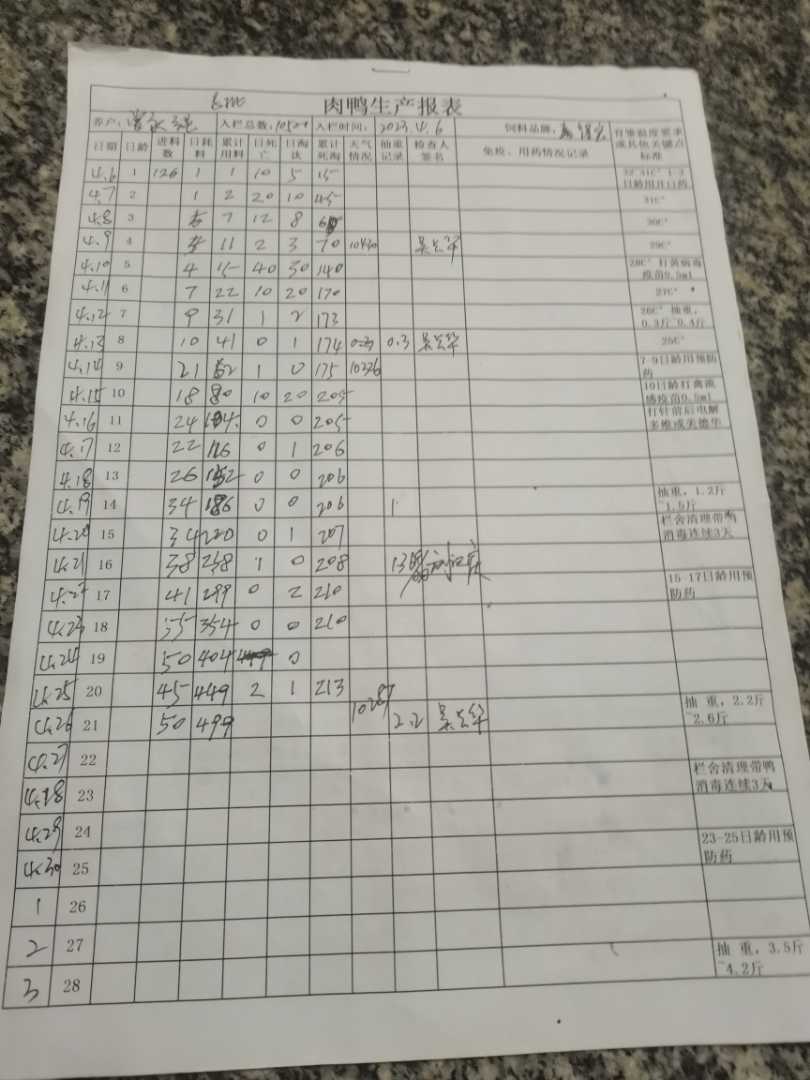 肉鸭生产报表
养户: 入栏总数: 10527 入栏时间: 2023.4.6 饲料品牌:
日期 日龄 进料数 日耗料 累计用料 日死亡 日淘汰 累计死淘 天气情况 抽重记录 检查人签名 免疫、用药情况记录 育雏温度要求或其他关键点标准
4.6 1 126 1 1 10 5 15 32-31C° 1-3日龄用开口药
4.7 2 1 2 20 10 45 31C°
4.8 3 7 12 8 30C°
4.9 4 11 2 3 70 10430 29C°
4.10 5 4 15 40 30 140 28C° 打黄病毒疫苗0.5ml
4.11 6 7 22 10 20 170 27C°
4.12 7 9 31 1 2 173 26C° 抽重,0.3斤~0.4斤
4.13 8 10 41 0 1 174 0.3 25C°
4.14 9 21 62 1 0 175 7-9日龄用预防药
4.15 10 18 80 10 20 205 10日龄打禽流感疫苗0.5ml
4.16 11 24 104 0 0 205 打针前后电解多维或美德华
4.17 12 22 126 0 1 206
4.18 13 26 152 0 0 206
4.19 14 34 186 0 0 206 1 抽重,1.2斤~1.5斤
4.20 15 34 220 0 1 207 栏舍清理带鸭消毒连续3天
4.21 16 38 258 1 0 208
4.22 17 41 299 0 2 210 15-17日龄用预防药
4.23 18 55 354 0 0 210
4.24 19 50 404 0
4.25 20 45 449 2 1 213
4.26 21 50 499 10287 2.2 抽重,2.2斤~2.6斤
4.27 22
4.28 23 栏舍清理带鸭消毒连续3天
4.29 24
4.30 25 23-25日龄用预防药
1 26
2 27
3 28 抽重,3.5斤~4.2斤